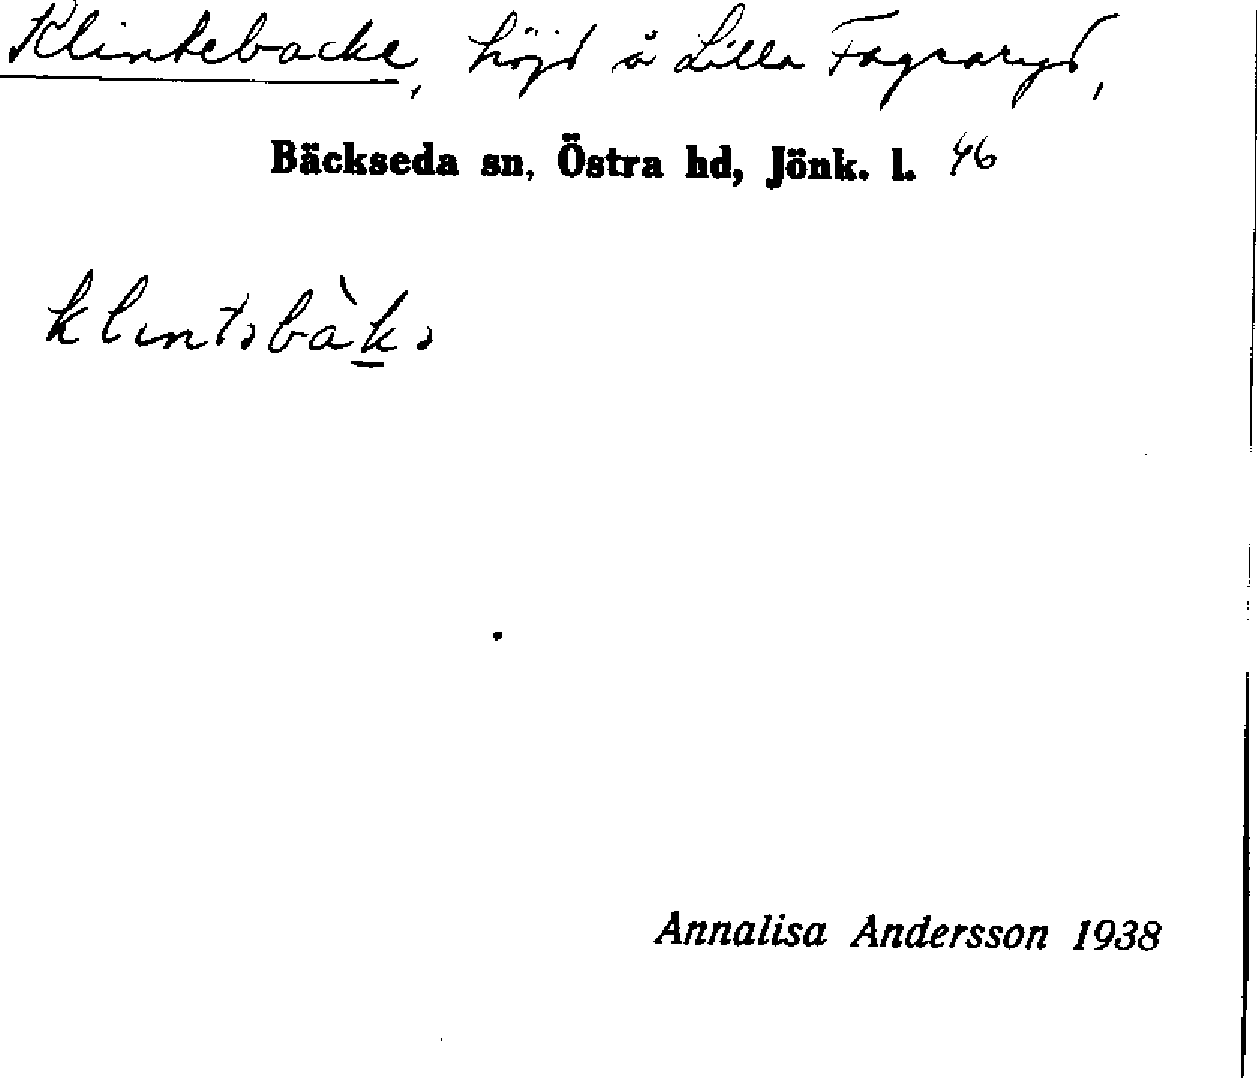 Klintebacke, höjd å Lilla Fagraryd,
Bäckseda sn, Östra hd, Jönk. l. 46
klıntəbàk̲ə
Annalisa Andersson 1938